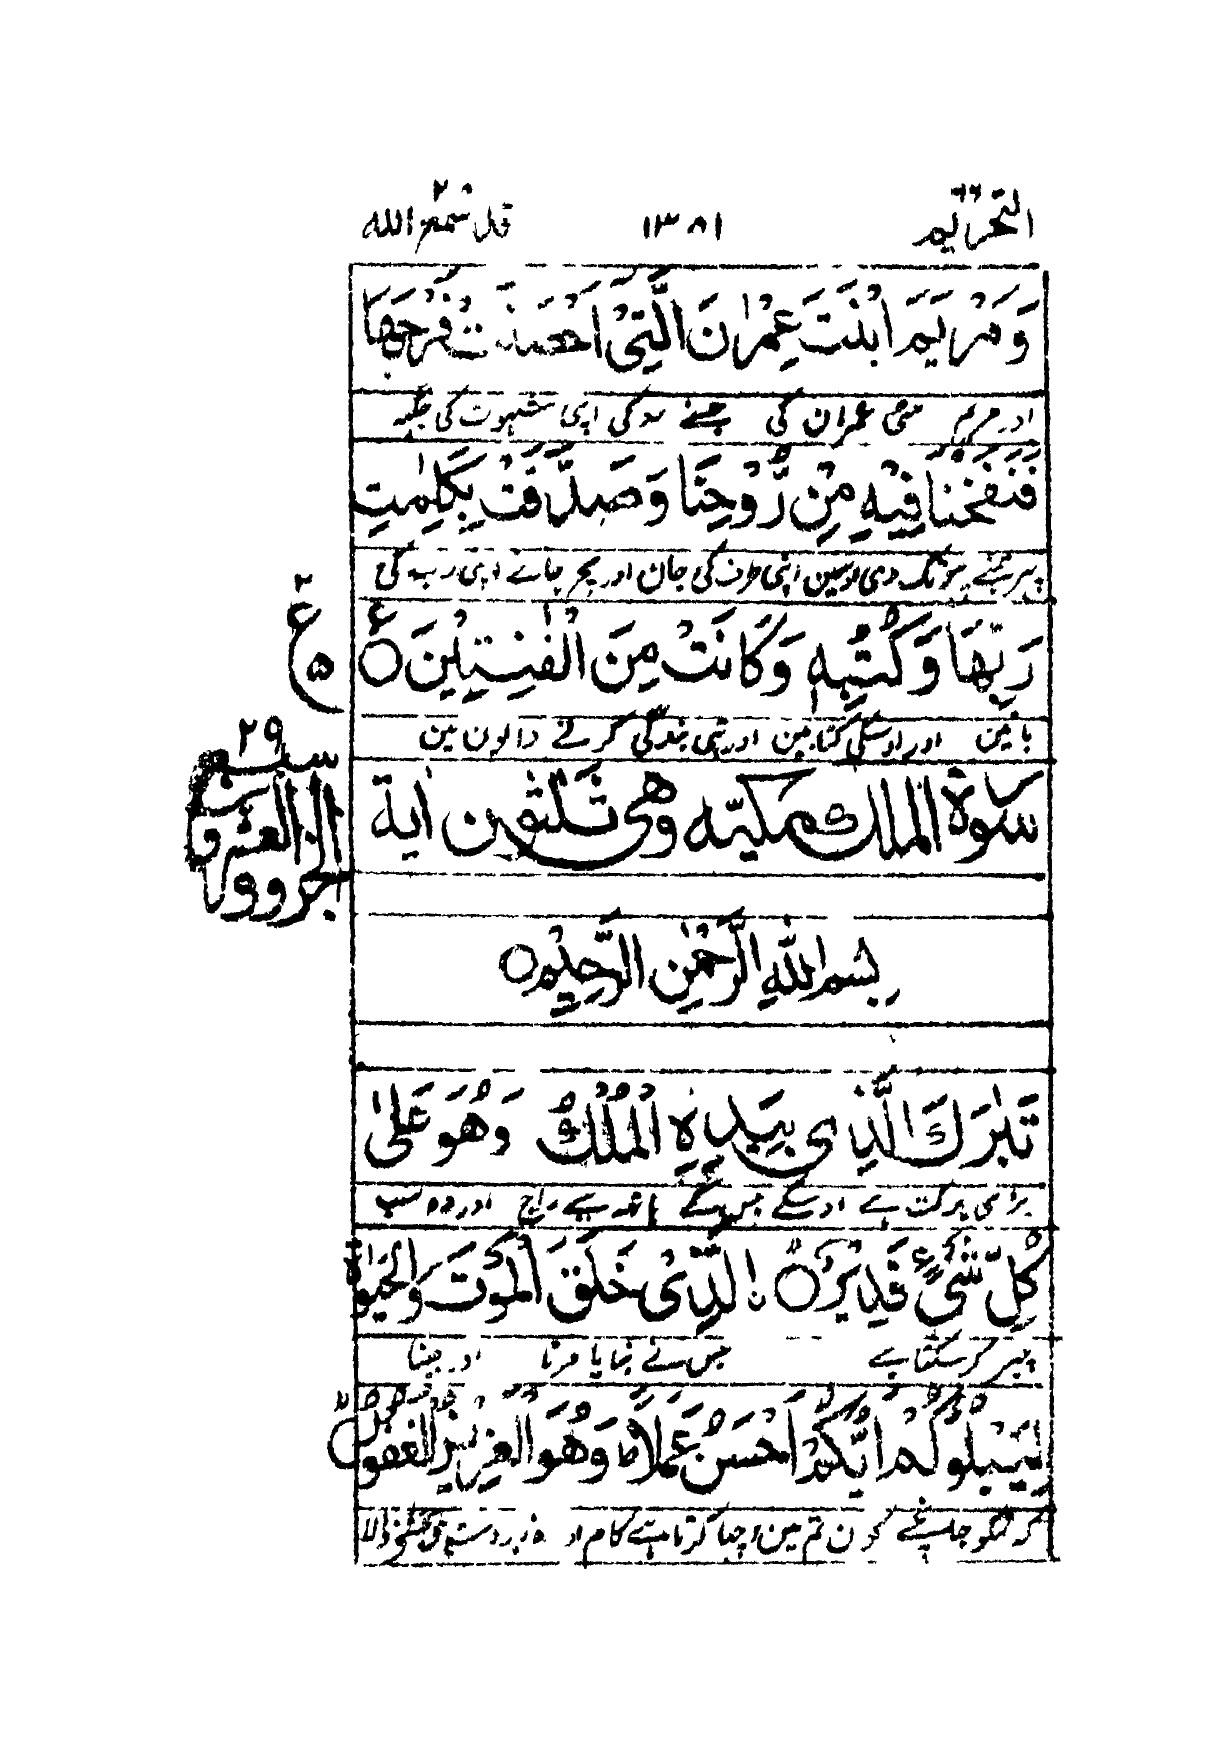 التحریم ٦٦ ١٣٨١ قد سمع الله ٢٨
وَمَرْيَمَ ابْنَتَ عِمْرٰنَ الَّتِىْۤ اَحْصَنَتْ فَرْجَهَا
اور مریم عمران کی جسنے روکی اپنی شہوت کی جگہہ
فَنَفَخْنَا فِيْهِ مِنْ رُّوْحِنَا وَصَدَّقَتْ بِكَلِمٰتِ
پہر ہمنے پہونک دی اوسمین اپنی طرف کی جان اور اپنی رب کی
رَبِّهَا وَكُتُبِهٖ وَكَانَتْ مِنَ الْقٰنِتِيْنَ ۝ ع
٢ ع ٥
باتین اور اوسکی کتابین اور تہی بندگی کرنے والون مین
٢٩
سورة الملك مكيّه وهى ثلثون اٰية
الجزو والعشرون
بِسْمِ اللهِ الرَّحْمٰنِ الرَّحِيْمِ ۝
تَبٰرَكَ الَّذِىْ بِيَدِهِ الْمُلْكُ وَهُوَ عَلٰى
بڑی برکت ہے اوسکے جسکے ہاتھ ہے راج اور وہ سب
كُلِّ شَىْءٍ قَدِيْرُ ۝ نِ الَّذِىْ خَلَقَ الْمَوْتَ وَالْحَيٰوةَ
چیز کر سکتا ہے جس نے بنایا مرنا اور جینا
لِيَبْلُوَكُمْ اَيُّكُمْ اَحْسَنُ عَمَلًا ؕ وَهُوَ الْعَزِيْزُ الْغَفُوْرُ
کہ تمکو جانچے کون تم مین اچہا کرتا ہے کام اور زبردست ہے بخشنے والا